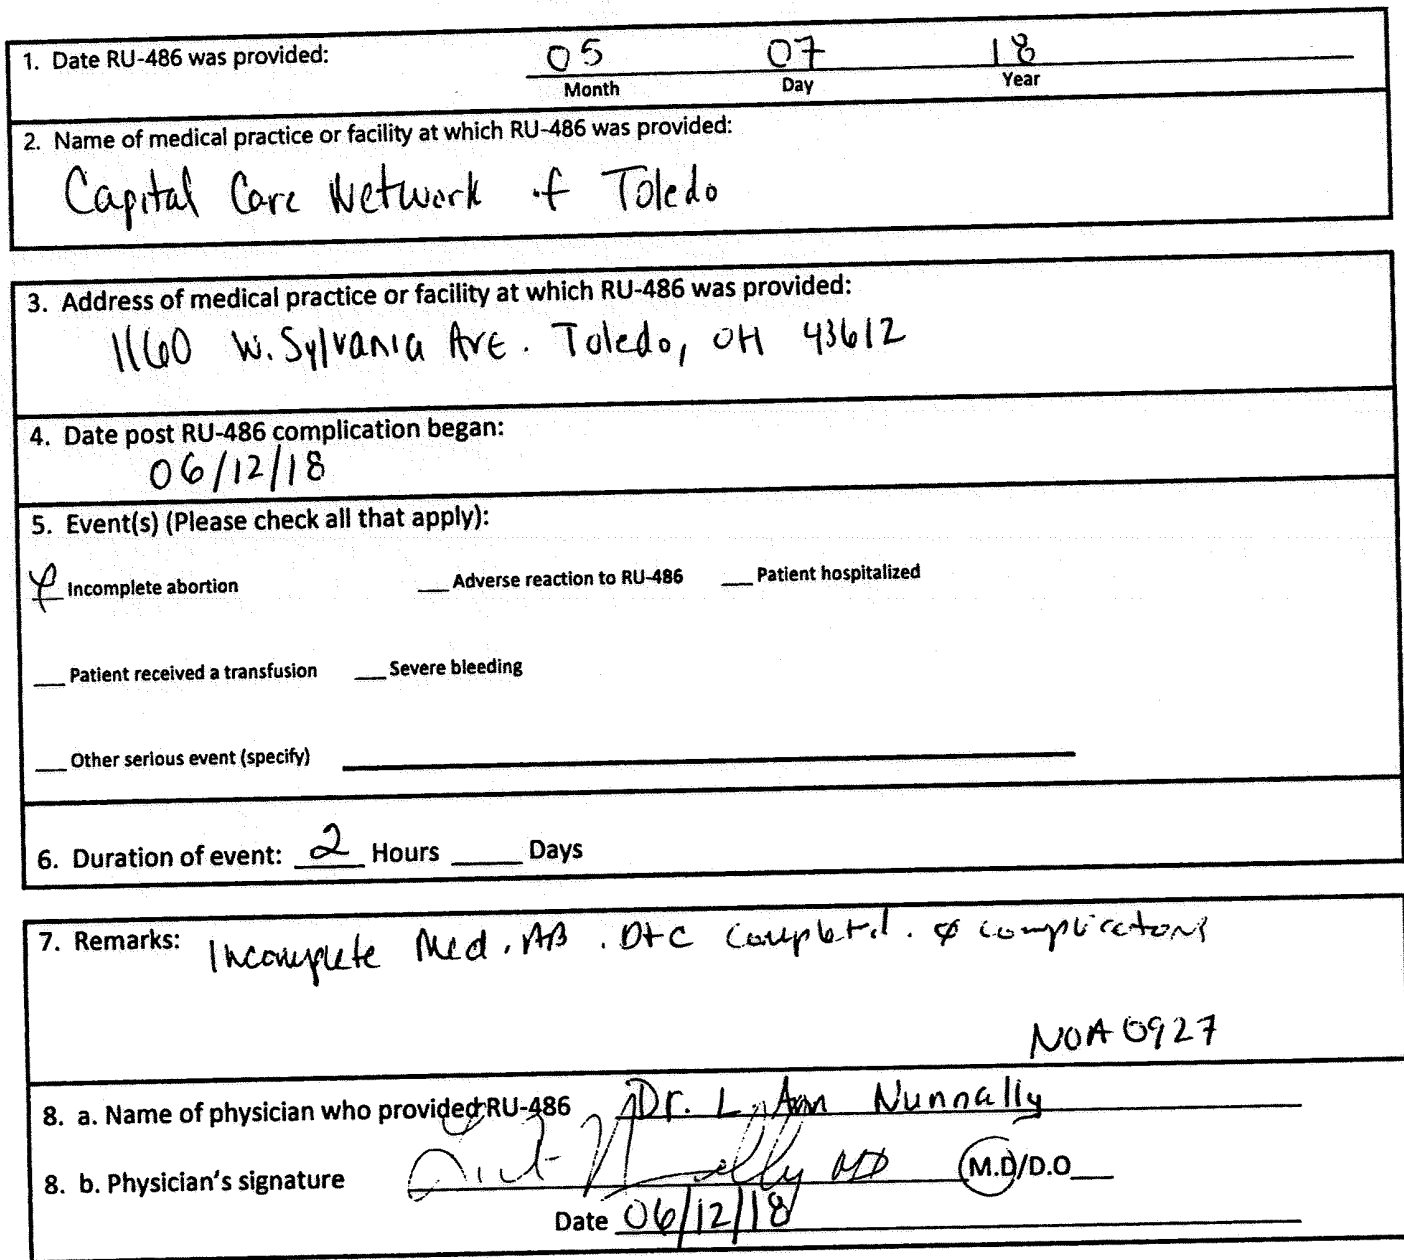 1. Date RU-486 was provided: 05 07 18
Month Day Year
2. Name of medical practice or facility at which RU-486 was provided:
Capital Care Network of Toledo
3. Address of medical practice or facility at which RU-486 was provided:
1160 W. Sylvania Ave. Toledo, OH 43612
4. Date post RU-486 complication began:
06/12/18
5. Event(s) (Please check all that apply):
Incomplete abortion ___ Adverse reaction to RU-486 ___ Patient hospitalized
___ Patient received a transfusion ___ Severe bleeding
___ Other serious event (specify)
6. Duration of event: 2 Hours ____ Days
7. Remarks: Incomplete Med. AB. D+C Completed. ∅ complications
NOA 0927
8. a. Name of physician who provided RU-486 Dr. L. Ann Nunnally
8. b. Physician's signature MD M.D/D.O
Date 06/12/18